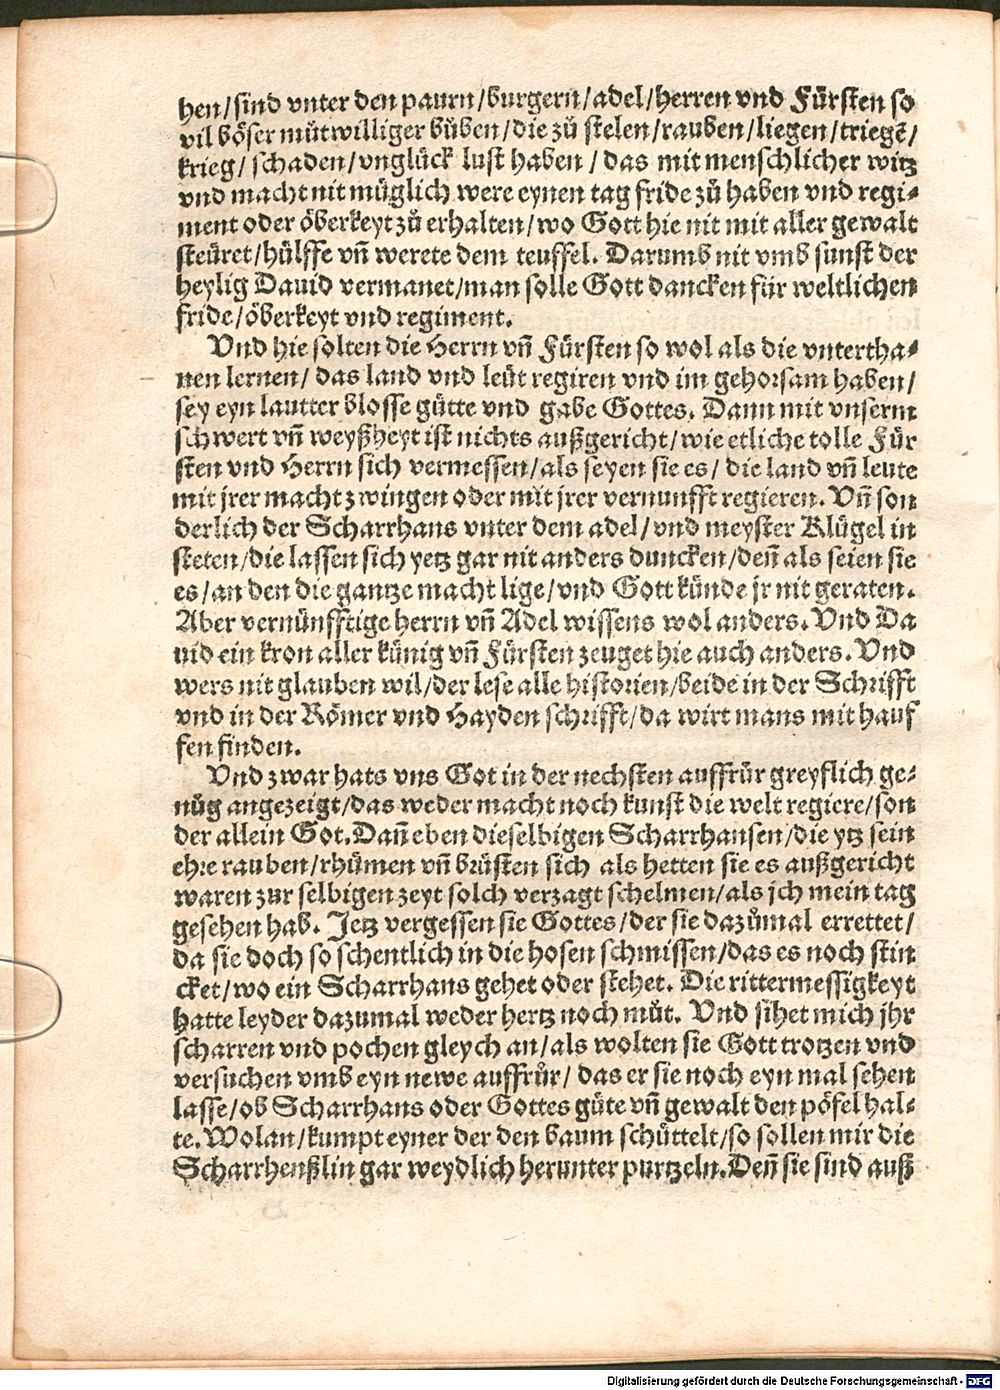 hen/sind vnter den paurn/burgern/adel/herren vnd Fürsten so
vil böser mütwilliger büben/die zů stelen/rauben/liegen/triegẽ/
krieg/ schaden/vnglück lust haben / das mit menschlicher witz
vnd macht nit müglich were eynen tag fride zů haben vnd regi-
ment oder öberkeyt zů erhalten/wo Gott hie nit mit aller gewalt
steüret/hülffe vñ werete dem teuffel. Darumb nit vmb sunst der
heylig Dauid vermanet/man solle Gott dancken für weltlichen
fride/öberkeyt vnd regiment.
Vnd hie solten die Herrn vñ Fürsten so wol als die vntertha-
nen lernen/ das land vnd leüt regiren vnd im gehorsam haben/
sey eyn lautter blosse gütte vnd gabe Gottes. Dann mit vnserm
schwert vñ weyßheyt ist nichts außgericht/wie etliche tolle Für
sten vnd Herrn sich vermessen/als seyen sie es/ die land vñ leute
mit jrer macht zwingen oder mit jrer vernunfft regieren. Vñ son
derlich der Scharrhans vnter dem adel/vnd meyster Klügel in
steten/die lassen sich yetz gar nit anders duncken/deñ als seien sie
es/an den die gantze macht lige/vnd Gott künde jr nit geraten.
Aber vernünfftige herrn vñ Adel wissens wol anders. Vnd Da
uid ein kron aller künig vñ Fürsten zeuget hie auch anders. Vnd
wers nit glauben wil/der lese alle historien/beide in der Schrifft
vnd in der Römer vnd Hayden schrifft/da wirt mans mit hauf
fen finden.
Vnd zwar hats vns Got in der nechsten auffrür greyflich ge-
nüg angezeigt/das weder macht noch kunst die welt regiere/son
der allein Got. Dañ eben dieselbigen Scharrhansen/die ytz sein
ehre rauben/rhümen vñ brüsten sich als hetten sie es außgericht
waren zur selbigen zeyt solch verzagt schelmen/als jch mein tag
gesehen hab. Jetz vergessen sie Gottes/der sie dazůmal errettet/
da sie doch so schentlich in die hosen schmissen/das es noch stin
cket/wo ein Scharrhans gehet oder stehet. Die rittermessigkeyt
hatte leyder dazumal weder hertz noch můt. Vnd sihet mich jhr
scharren vnd pochen gleych an/als wolten sie Gott trotzen vnd
versuchen vmb eyn newe auffrůr/ das er sie noch eyn mal sehen
lasse/ob Scharrhans oder Gottes güte vñ gewalt den pöfel hal-
te. Wolan/kumpt eyner der den baum schüttelt/so sollen mir die
Scharrhenßlin gar weydlich herunter purtzeln. Deñ sie sind auß
Digitalisierung gefördert durch die Deutsche Forschungsgemeinschaft - DFG